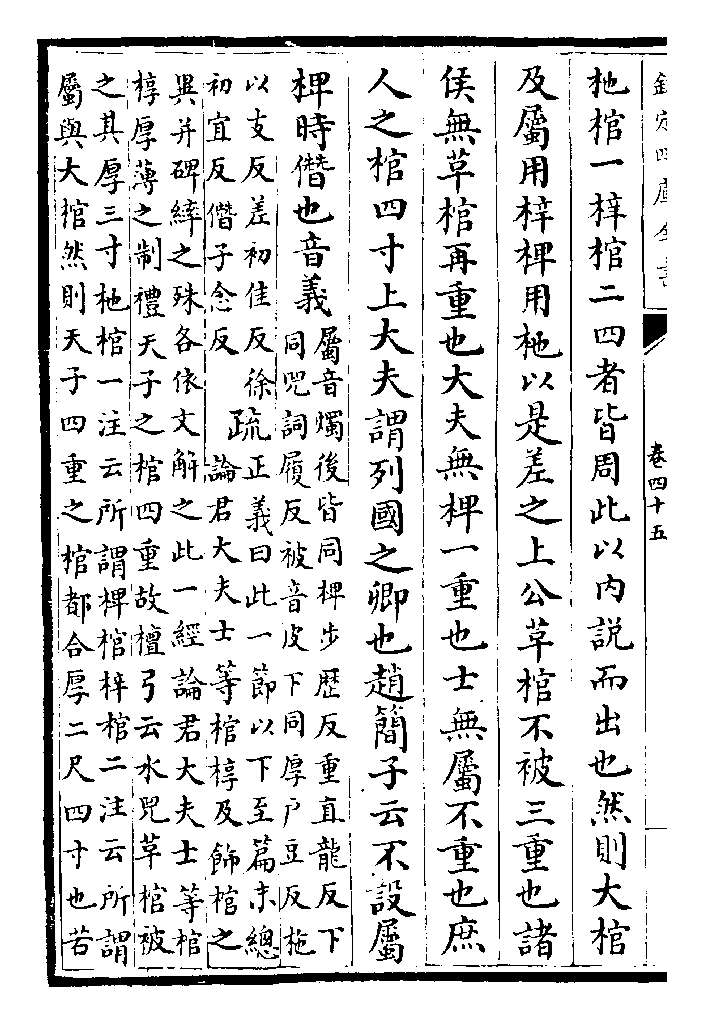 欽定四庫全書
卷四十五
杝棺一梓棺二四者皆周此以内說而出也然則大棺
及屬用梓椑用杝以是差之上公草棺不被三重也諸
侯無草棺再重也大夫無椑一重也士無屬不重也庶
人之棺四寸上大夫謂列國之卿也趙簡子云不設屬
椑時僭也音義
屬音燭後皆同椑步歷反重直龍反下
同兕詞履反被音皮下同厚戶豆反柂
以支反差初佳反徐
初宜反僭子念反
疏
正義曰此一節以下至篇末總
論君大夫士等棺椁及飾棺之
異并碑繂之殊各依文解之此一經論君大夫士等棺
椁厚薄之制禮天子之棺四重故檀弓云水兕草棺被
之其厚三寸杝棺一注云所謂椑棺梓棺二注云所謂
屬與大棺然則天子四重之棺都合厚二尺四寸也若